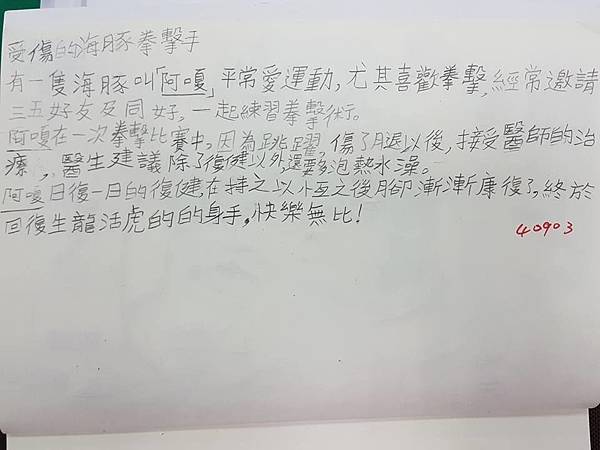 受傷的海豚拳擊手
有一隻海豚叫「阿嘎」平常愛運動,尤其喜歡拳擊,經常邀請
三五好友及同好,一起練習拳擊術。
阿嘎在一次拳擊比賽中,因為跳躍,傷了腿以後,接受醫師的治
療,醫生建議除了復健以外還要多泡熱水澡。
阿嘎日復一日的復健,在持之以恆之後腳漸漸康復了,終於
回復生龍活虎的的身手,快樂無比!
40903